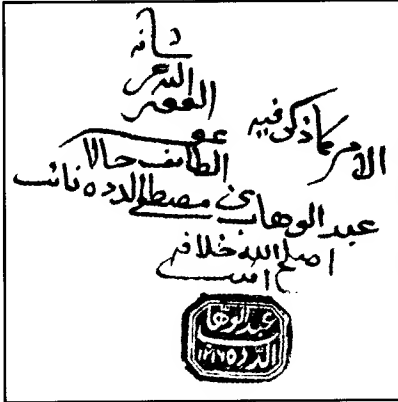 الامر كما ذكر فيه
الفقير
الله عز
شانه
عبد الوهاب بن مصطفى الدده نائب
الطائف حالا
اصلح الله
عبد الوهاب
الدده